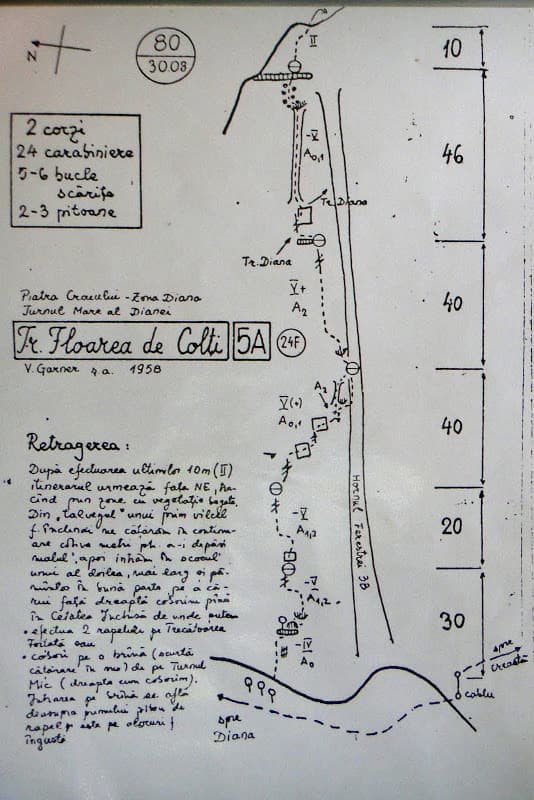 N
80
30.03
2 corzi
24 carabiniere
5-6 bucle
scărițe
2-3 pitoane
Piatra Craiului - Zona Diana
Turnul Mare al Dianei
Tr. Floarea de Colți 5A 24F
V. Garner ș.a. 1958
Retragerea:
După efectuarea ultimilor 10m (II)
itinerarul urmează fața NE,
cînd prin zone cu vegetație
Din "talvegul" unui prim vîlcel
f. înclinat ne cățărăm în continu-
are cîțiva metri pt. a-i depăși
malul, apoi intrăm în scocul
unui al doilea, mai larg și pă-
mîntos în bună parte, pe a că-
rui față dreaptă coborîm pînă
în Cetatea Închisă de unde putem
• efectua 2 rapeluri pe Trecătoarea
sau
• coborî pe o brînă (scurtă
cățărare în ) de pe Turnul
Mic (dreapta cum coborîm).
Intrarea pe brînă se află
deasupra primului piton de
rapel și este pe alocuri f.
îngustă
II
-V
A0,1
Tr. Diana
Tr. Diana
V+
A2
A2
V(+)
A0,1
-V
A1,2
-V
A1,2
-IV
A0
Hornul Ferestrei 3B
10
46
40
40
20
30
spre
creastă
cablu
spre
Diana